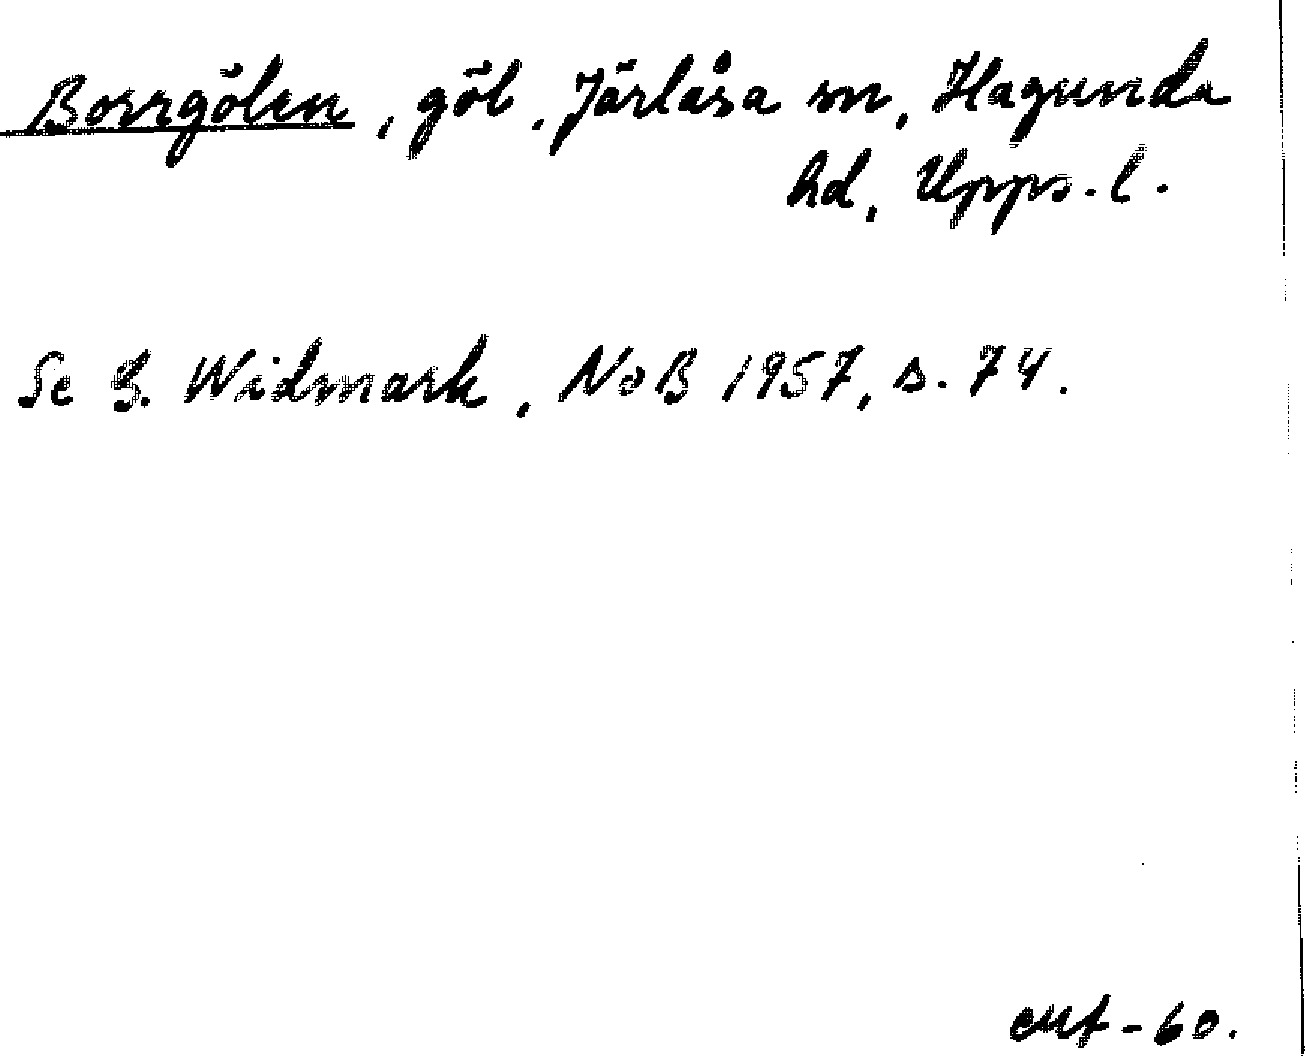 Borrgölen, göl, Järlåsa sn, Hagunda
hd, Upps. l.
Se G. Widmark, NoB 1957, s. 74.
-60.